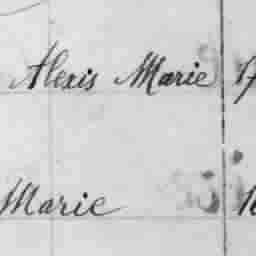 Alexis Marie 1
Marie 1